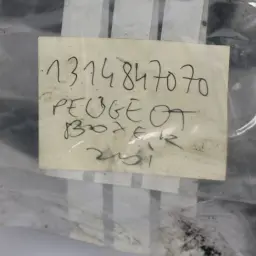 1314847070
PEUGEOT
BOXER